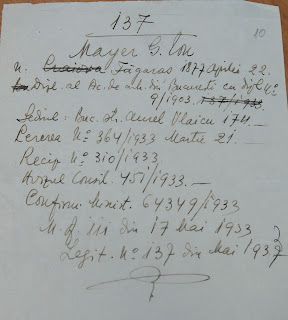 137
10
Mayer G. Ion
n. Craiova Făgăraș 1877 Aprilie 22.
Dipl. al Ac. be arte din Bucuresti cu dipl. No
9/1903. 137/1933
Sediul: Buc. Str. Aurel Vlaicu 174.
Cererea No 364/1933 Martie 21.
Recip No 310/1933
Avizul Consil. 451/1933.
Confirm. Minist. 64349/1933
M. Of. 111 din 17 Mai 1933
Legit. No 137 din Mai 1933